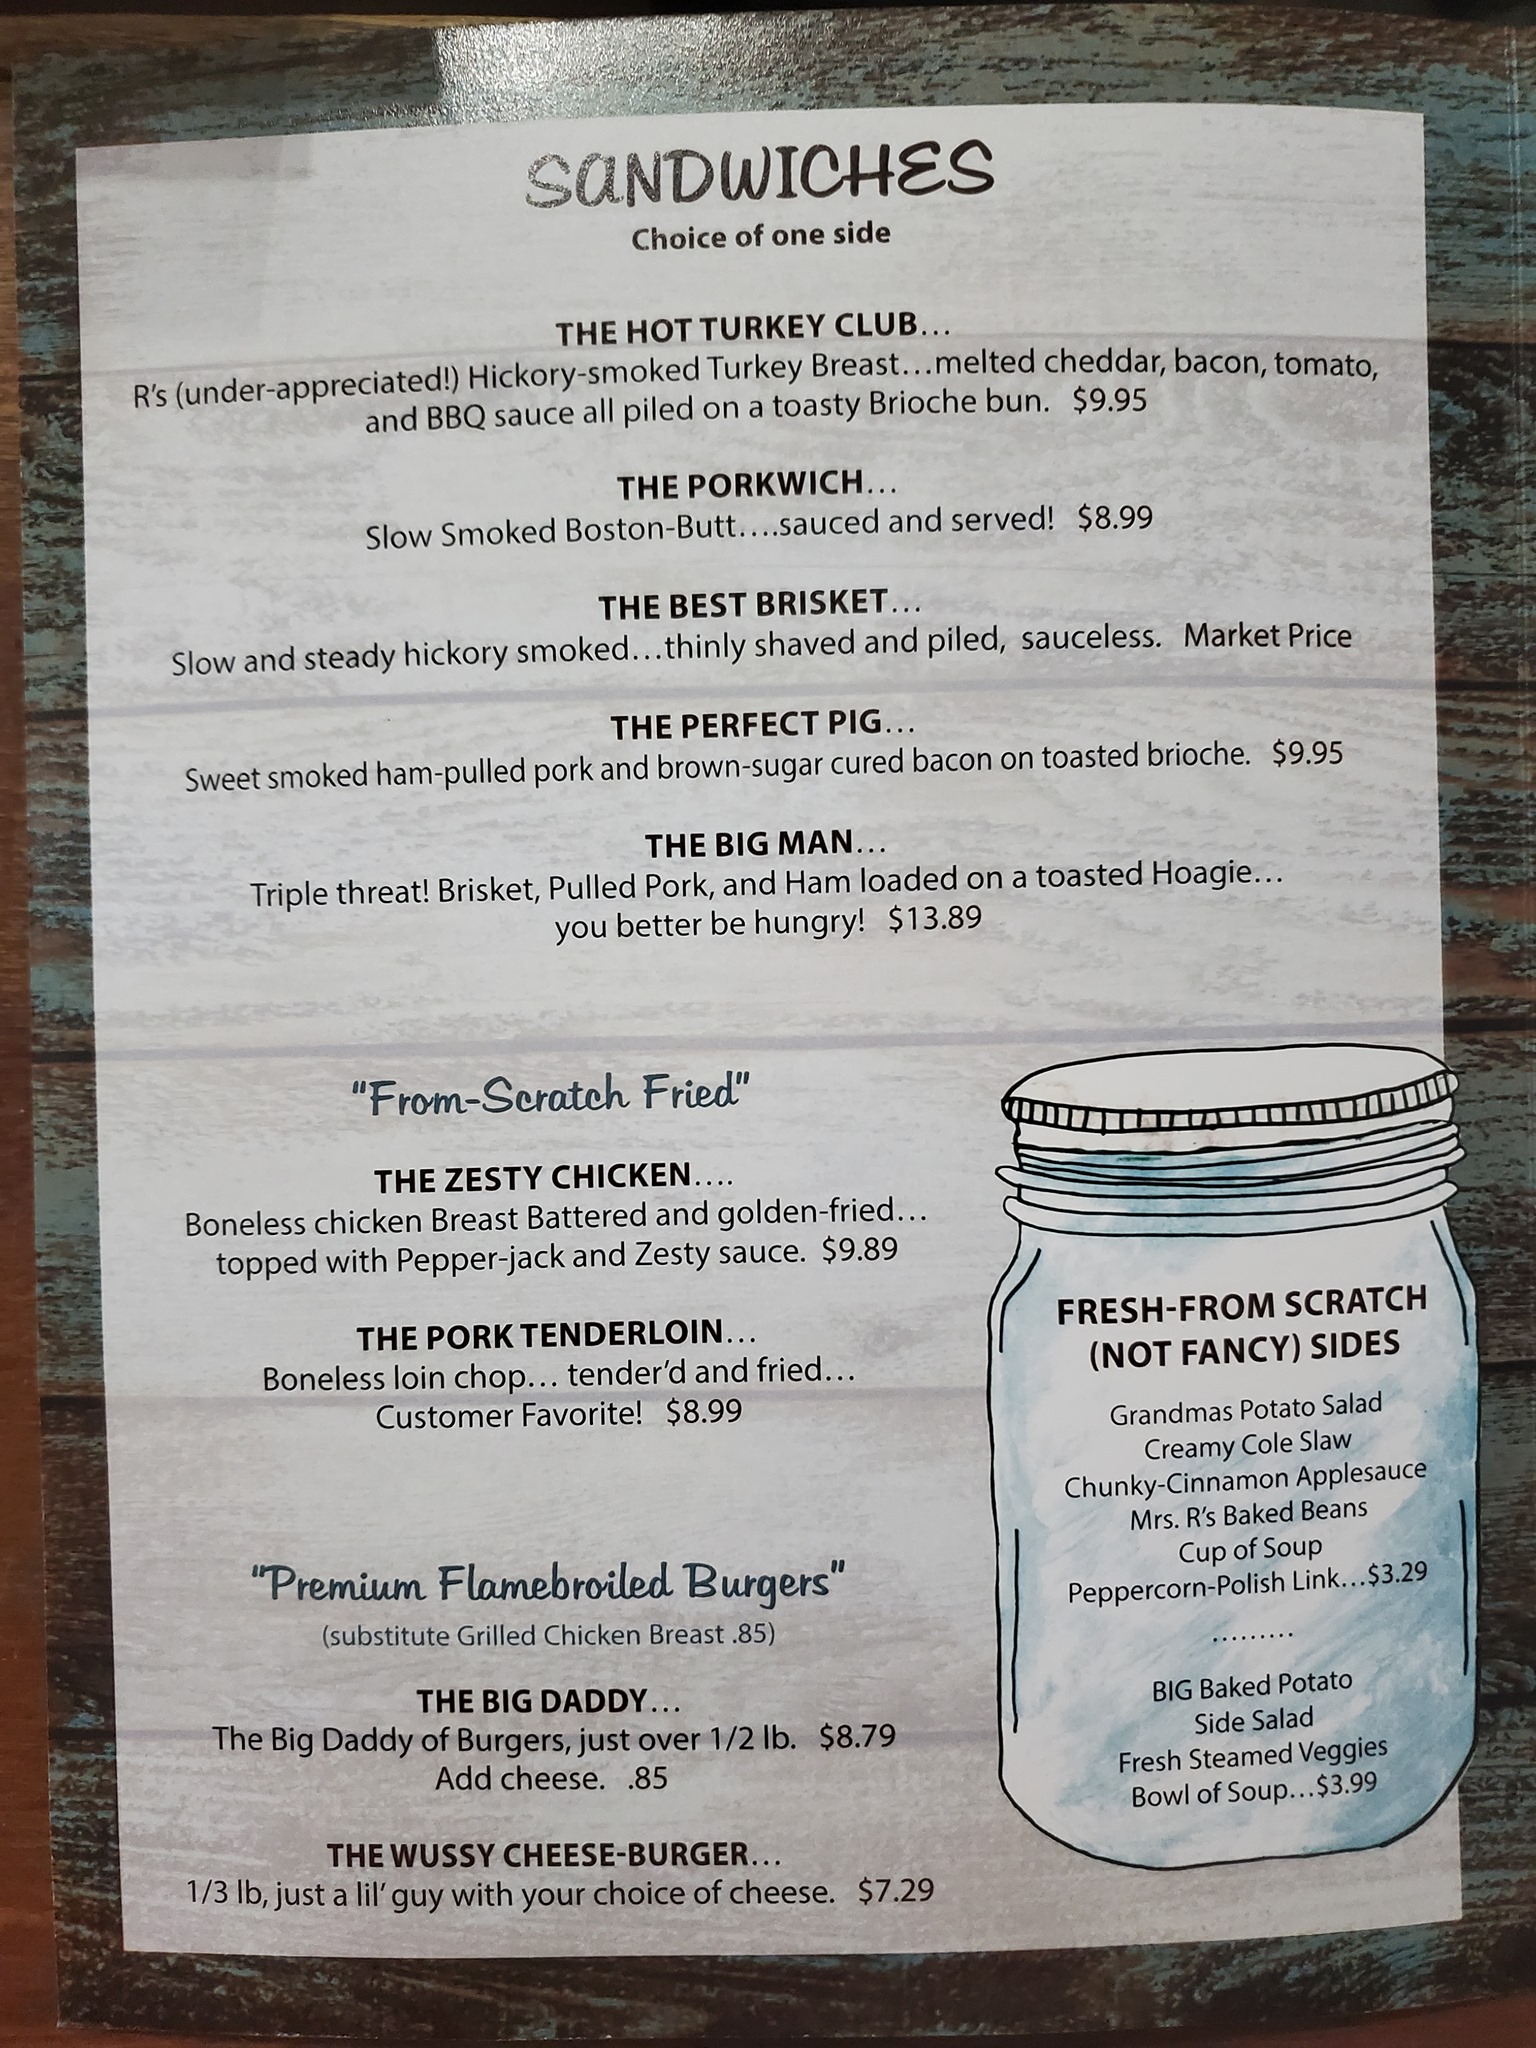 SANDWICHES
Choice of one side
THE HOT TURKEY CLUB...
R's (under-appreciated!) Hickory-smoked Turkey Breast...melted cheddar, bacon, tomato,
and BBQ sauce all piled on a toasty Brioche bun. $9.95
THE PORKWICH...
Slow Smoked Boston-Butt....sauced and served! $8.99
THE BEST BRISKET...
Slow and steady hickory smoked...thinly shaved and piled, sauceless. Market Price
THE PERFECT PIG...
Sweet smoked ham-pulled pork and brown-sugar cured bacon on toasted brioche. $9.95
THE BIG MAN...
Triple threat! Brisket, Pulled Pork, and Ham loaded on a toasted Hoagie...
you better be hungry! $13.89
"From-Scratch Fried"
THE ZESTY CHICKEN....
Boneless chicken Breast Battered and golden-fried...
topped with Pepper-jack and Zesty sauce. $9.89
THE PORK TENDERLOIN...
Boneless loin chop... tender'd and fried...
Customer Favorite! $8.99
"Premium Flamebroiled Burgers"
(substitute Grilled Chicken Breast .85)
THE BIG DADDY...
The Big Daddy of Burgers, just over 1/2 lb. $8.79
Add cheese. .85
THE WUSSY CHEESE-BURGER...
1/3 lb, just a lil' guy with your choice of cheese. $7.29
FRESH-FROM SCRATCH
(NOT FANCY) SIDES
Grandmas Potato Salad
Creamy Cole Slaw
Chunky-Cinnamon Applesauce
Mrs. R's Baked Beans
Cup of Soup
Peppercorn-Polish Link...$3.29
.........
BIG Baked Potato
Side Salad
Fresh Steamed Veggies
Bowl of Soup...$3.99